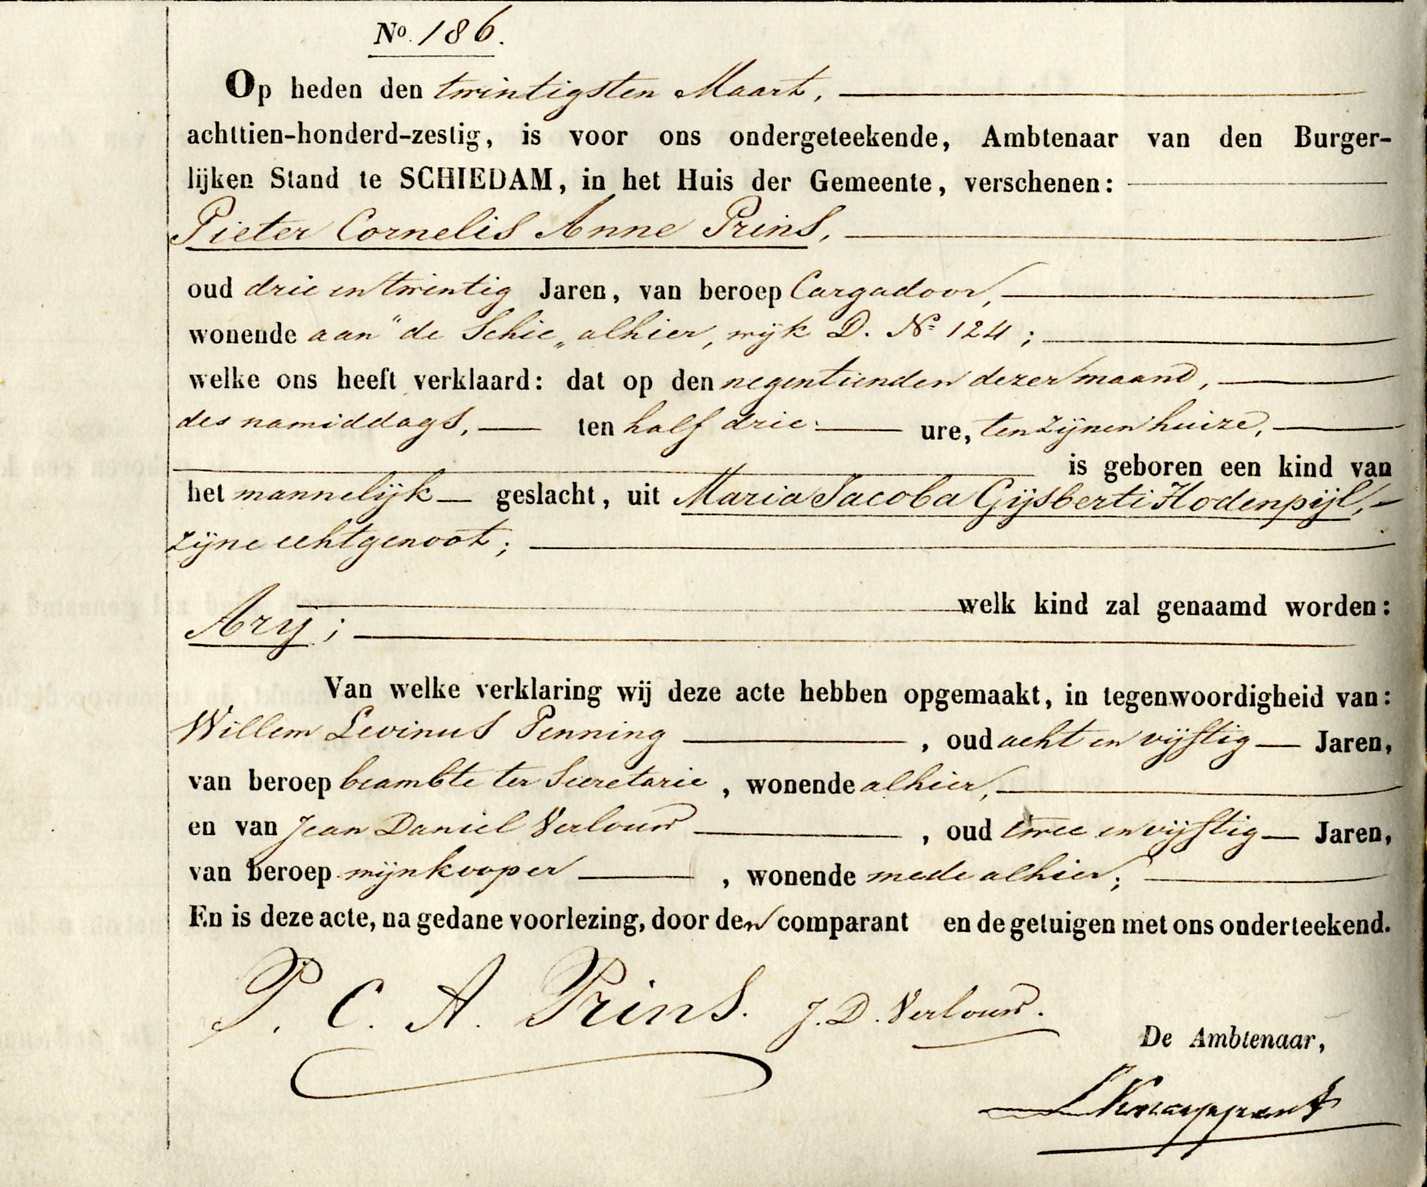 No. 186.
Op heden den twintigsten Maart,
achttien-honderd-zestig, is voor ons ondergeteekende, Ambtenaar van den Burger-
lijken Stand te SCHIEDAM, in het Huis der Gemeente, verschenen:
Pieter Cornelis Anne Prins,
oud drie en twintig Jaren, van beroep Cargadoor,
wonende aan "de Schie„ alhier, wijk D. No 124;
welke ons heeft verklaard: dat op den negentienden dezer maand,
des namiddags, ten half drie ure, ten zijnen huize,
is geboren een kind van
het mannelijk geslacht, uit Maria Jacoba Gijsberti Hodenpijl,
zijne echtgenoot;
welk kind zal genaamd worden:
Arij;
Van welke verklaring wij deze acte hebben opgemaakt, in tegenwoordigheid van:
Willem Levinus Penning, oud acht en vijftig Jaren,
van beroep beambte ter Secretarie, wonende alhier,
en van Jean Daniel Verlouw, oud twee en vijftig Jaren,
van beroep wijnkooper, wonende mede alhier;
En is deze acte, na gedane voorlezing, door den comparant en de getuigen met ons onderteekend.
P. C. A. Prins. J. D. Verlouw.
De Ambtenaar,